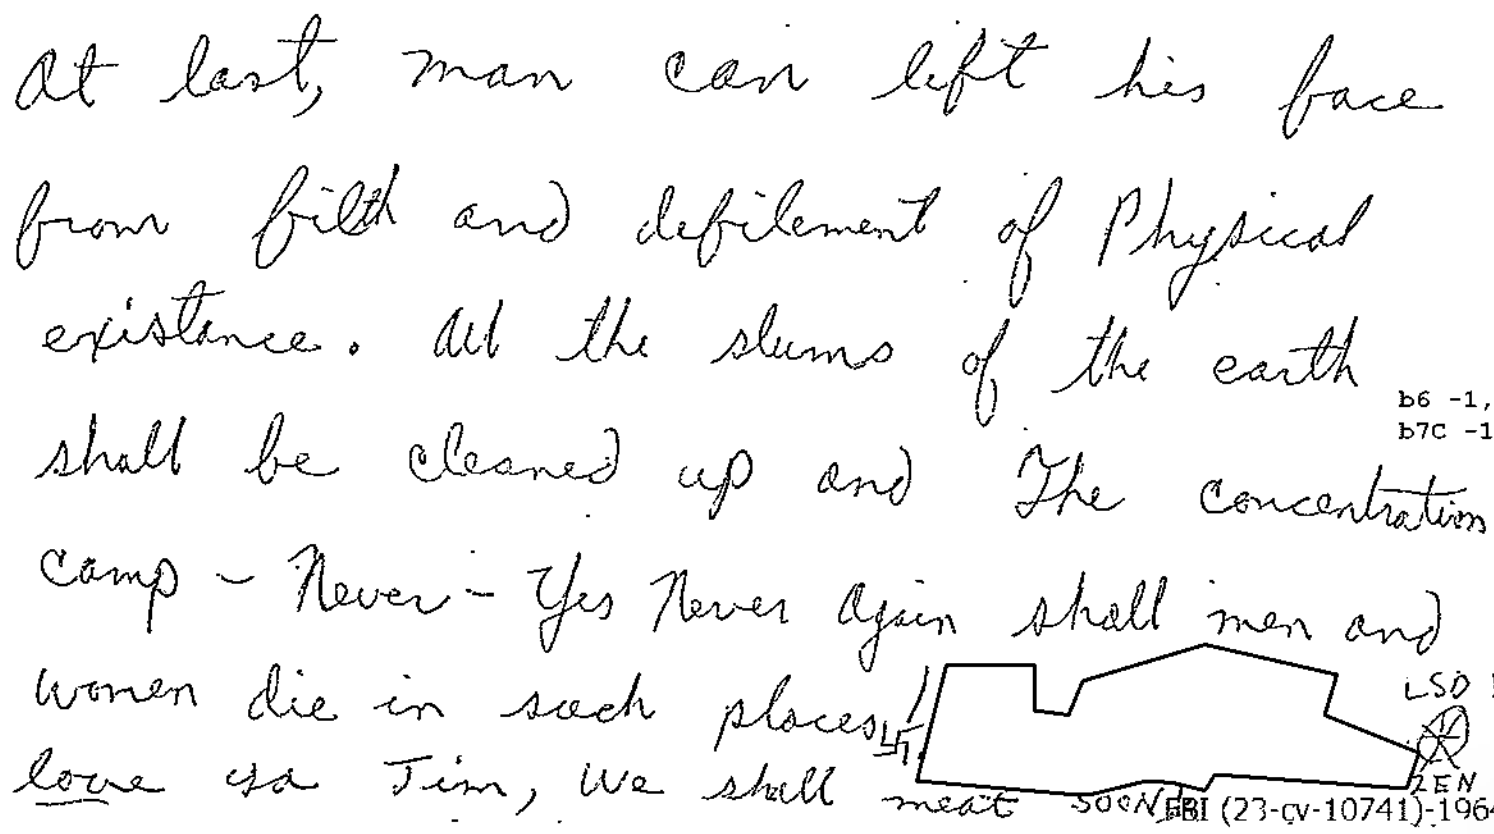 At last, man can lift his face
from filth and defilement of Physical
existance. All the slums of the earth
b6 -1,
b7C -1
shall be cleaned up and The concentration
camp - Never - Yes Never Again shall men and
women die in such places
LSD
love ya Jim, We shall meat SOON
ZEN
FBI (23-cv-10741)-1964